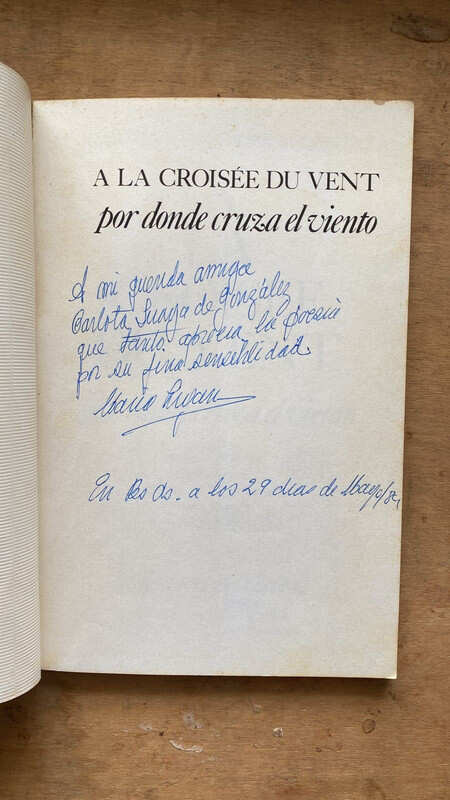 A LA CROISÉE DU VENT
por donde cruza el viento
A mi querida amiga
Carlota de González
que tanto aprecia la poesía
por su fina sensibilidad
En Bs As. a los 29 días de Mayo/84